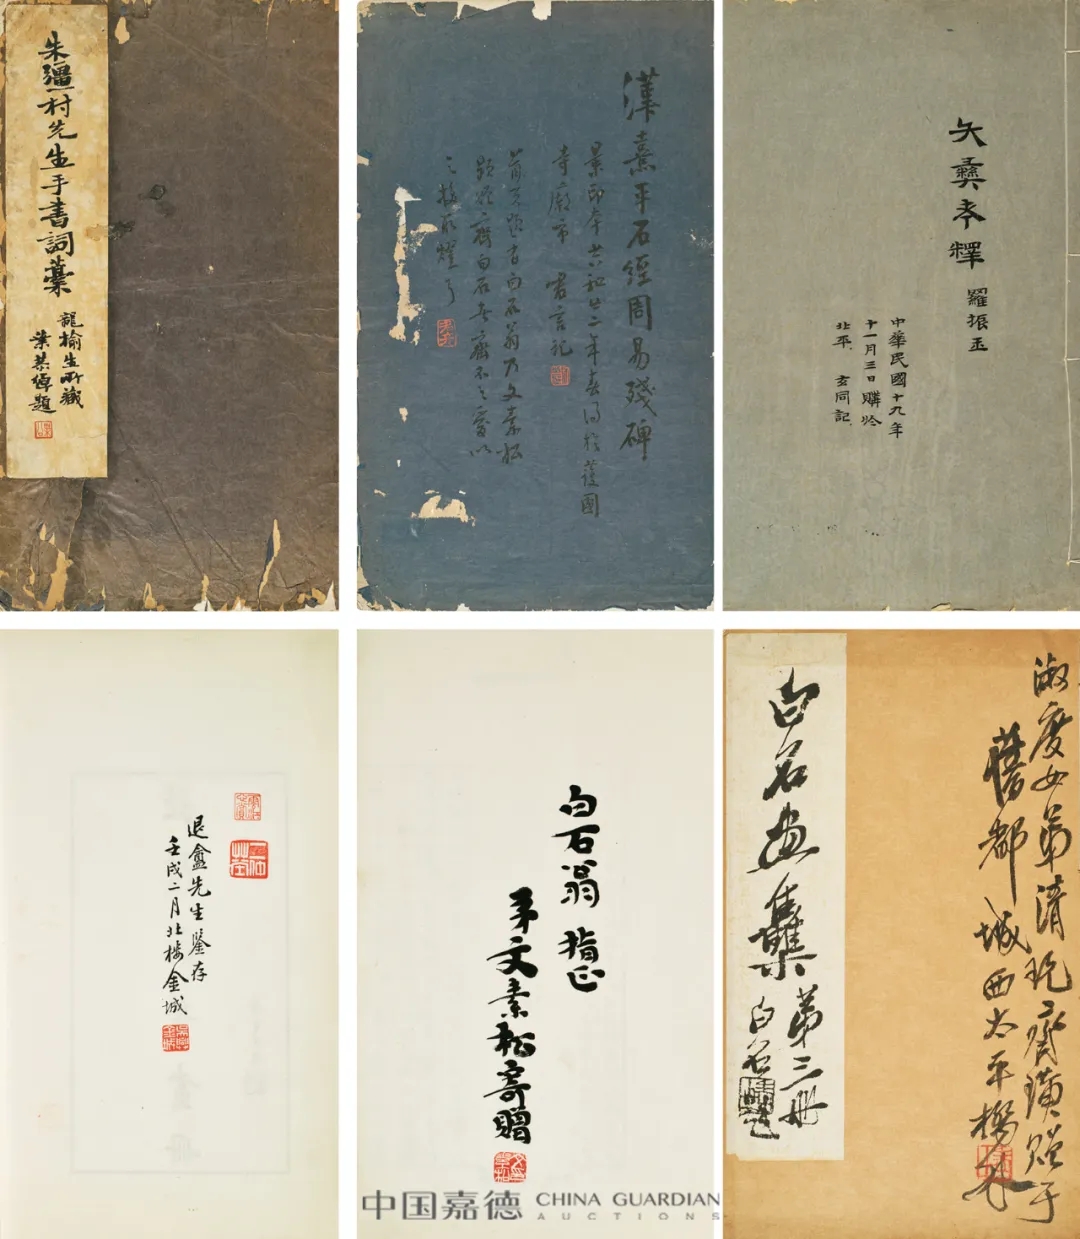 朱彊村先生手書詞藁
龍榆生所藏
葉恭綽題
漢熹平石經周易殘碑
景印本
廿二年春得於護國
寺廟市
前頁題首白石翁乃文素松
題贈齊白石者齊不之愛以
矢彝考釋 羅振玉
中華民國十九年
十一月三日購於
北平 玄同記
退盦先生鑒存
壬戌二月北樓金城
白石翁 指正
弟文素松寄贈
白石畫集
第三冊
白石
淑度女弟清玩齊璜贈于
舊都城西太平橋
中国嘉德 CHINA GUARDIAN
AUCTIONS